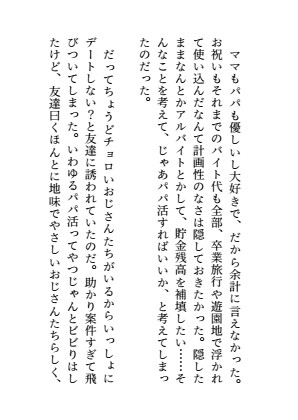 ママもパパも優しいし大好きで、だから余計に言えなかった。
お祝いもそれまでのバイト代も全部、卒業旅行や遊園地で浮かれ
て使い込んだなんて計画性のなさは隠しておきたかった。隠した
ままなんとかアルバイトとかして、貯金残高を補填したい……そ
んなことを考えて、じゃあパパ活すればいいか、と考えてしまっ
たのだった。
だってちょうどチョロいおじさんたちがいるからいっしょに
デートしない？と友達に誘われていたのだ。助かり案件すぎて飛
びついてしまった。いわゆるパパ活ってやつじゃんとビビりはし
たけど、友達曰くほんとに地味でやさしいおじさんたちらしく、